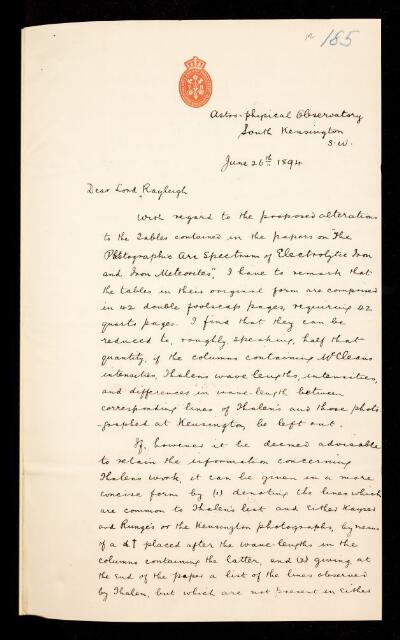 185
Astro-physical Observatory
South Kensington
S.W.
June 26th 1894
Dear Lord Rayleigh
With regard to the proposed alterations
to the Tables contained in the papers on "The
Photographic Arc Spectrum of Electrolytic Iron
and Iron Meteorites", I have to remark that
the tables in their original form are composed
in 42 double foolscap pages, requiring 42
quarto pages. I find that they can be
reduced to, roughly speaking, half that
quantity, if the columns containing McCleans
intensities, Thalens wave lengths, intensities,
and differences in wave-length between
corresponding lines of Thalen's and those photo
-graphed at Kensington, be left out.
If, however it be deemed advisable
to retain the information concerning
Thalens work, it can be given in a more
concise form by (1) denoting the lines which
are common to Thalen's list and either Kayser
and Runge's or the Kensington photographs, by means
of a † placed after the wave-lengths in the
columns containing the latter, and (2) giving at
the end of the paper a list of the lines observed
by Thalen, but which are not present in either